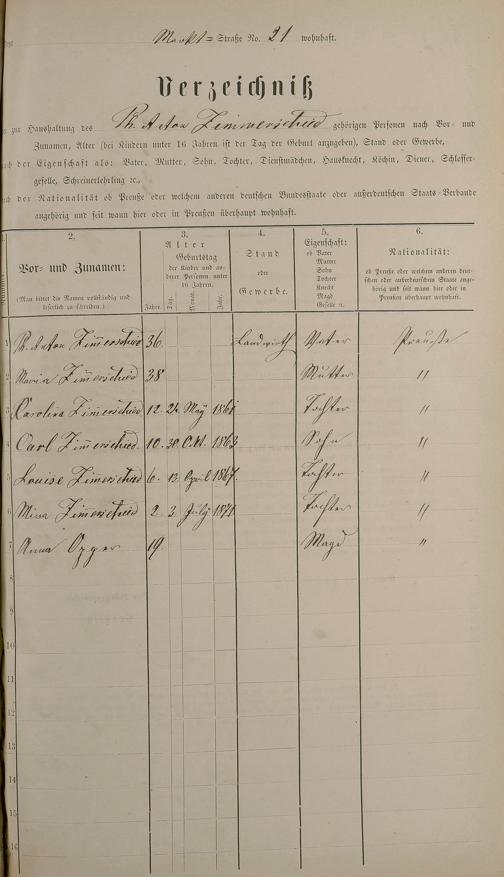 Markt= Straße No. 21 wohnhaft.
Verzeichniß
der zur Haushaltung des Ph. Anton Zimmerschied gehörigen Personen nach Vor- und
Zunamen, Alter (bei Kindern unter 16 Jahren ist der Tag der Geburt anzugeben), Stand oder Gewerbe,
nach der Eigenschaft als: Vater, Mutter, Sohn, Tochter, Dienstmädchen, Hausknecht, Köchin, Diener, Schlosser-
geselle, Schreinerlehrling ec.,
nach der Nationalität ob Preuße oder welchem anderen deutschen Bundesstaate oder außerdeutschen Staats-Verbande
angehörig und seit wann hier oder in Preußen überhaupt wohnhaft.
1. 2. 3. 4. 5. 6.
Vor- und Zunamen:
(Man bittet die Namen vollständig und leserlich zu schreiben.)
Alter
Geburtstag
der Kinder und anderer Personen unter 16 Jahren.
Jahre. Tag. Monat. Jahr.
Stand
oder
Gewerbe.
Eigenschaft:
ob Vater
Mutter
Sohn
Tochter
Knecht
Magd
Geselle u.
Nationalität:
ob Preuße oder welchem anderen deutschen oder außerdeutschen Staate angehörig und seit wann hier oder in Preußen überhaupt wohnhaft.
1 Ph. Anton Zimerschied 36 Landwirth Vater Preuße
2 Maria Zimerschied 38 Mutter "
3 Carolina Zimerschied 12. 24. May 1861 Tochter "
4 Carl Zimerschied 10. 30. Okt. 1863 Sohn "
5 Louise Zimerschied 6. 13. April 1867. Tochter "
6 Mina Zimerschied 2. 3. July 1871 Tochter "
7 Anna Opper 19 Magd "
8
9
10
11
12
13
14
15
16